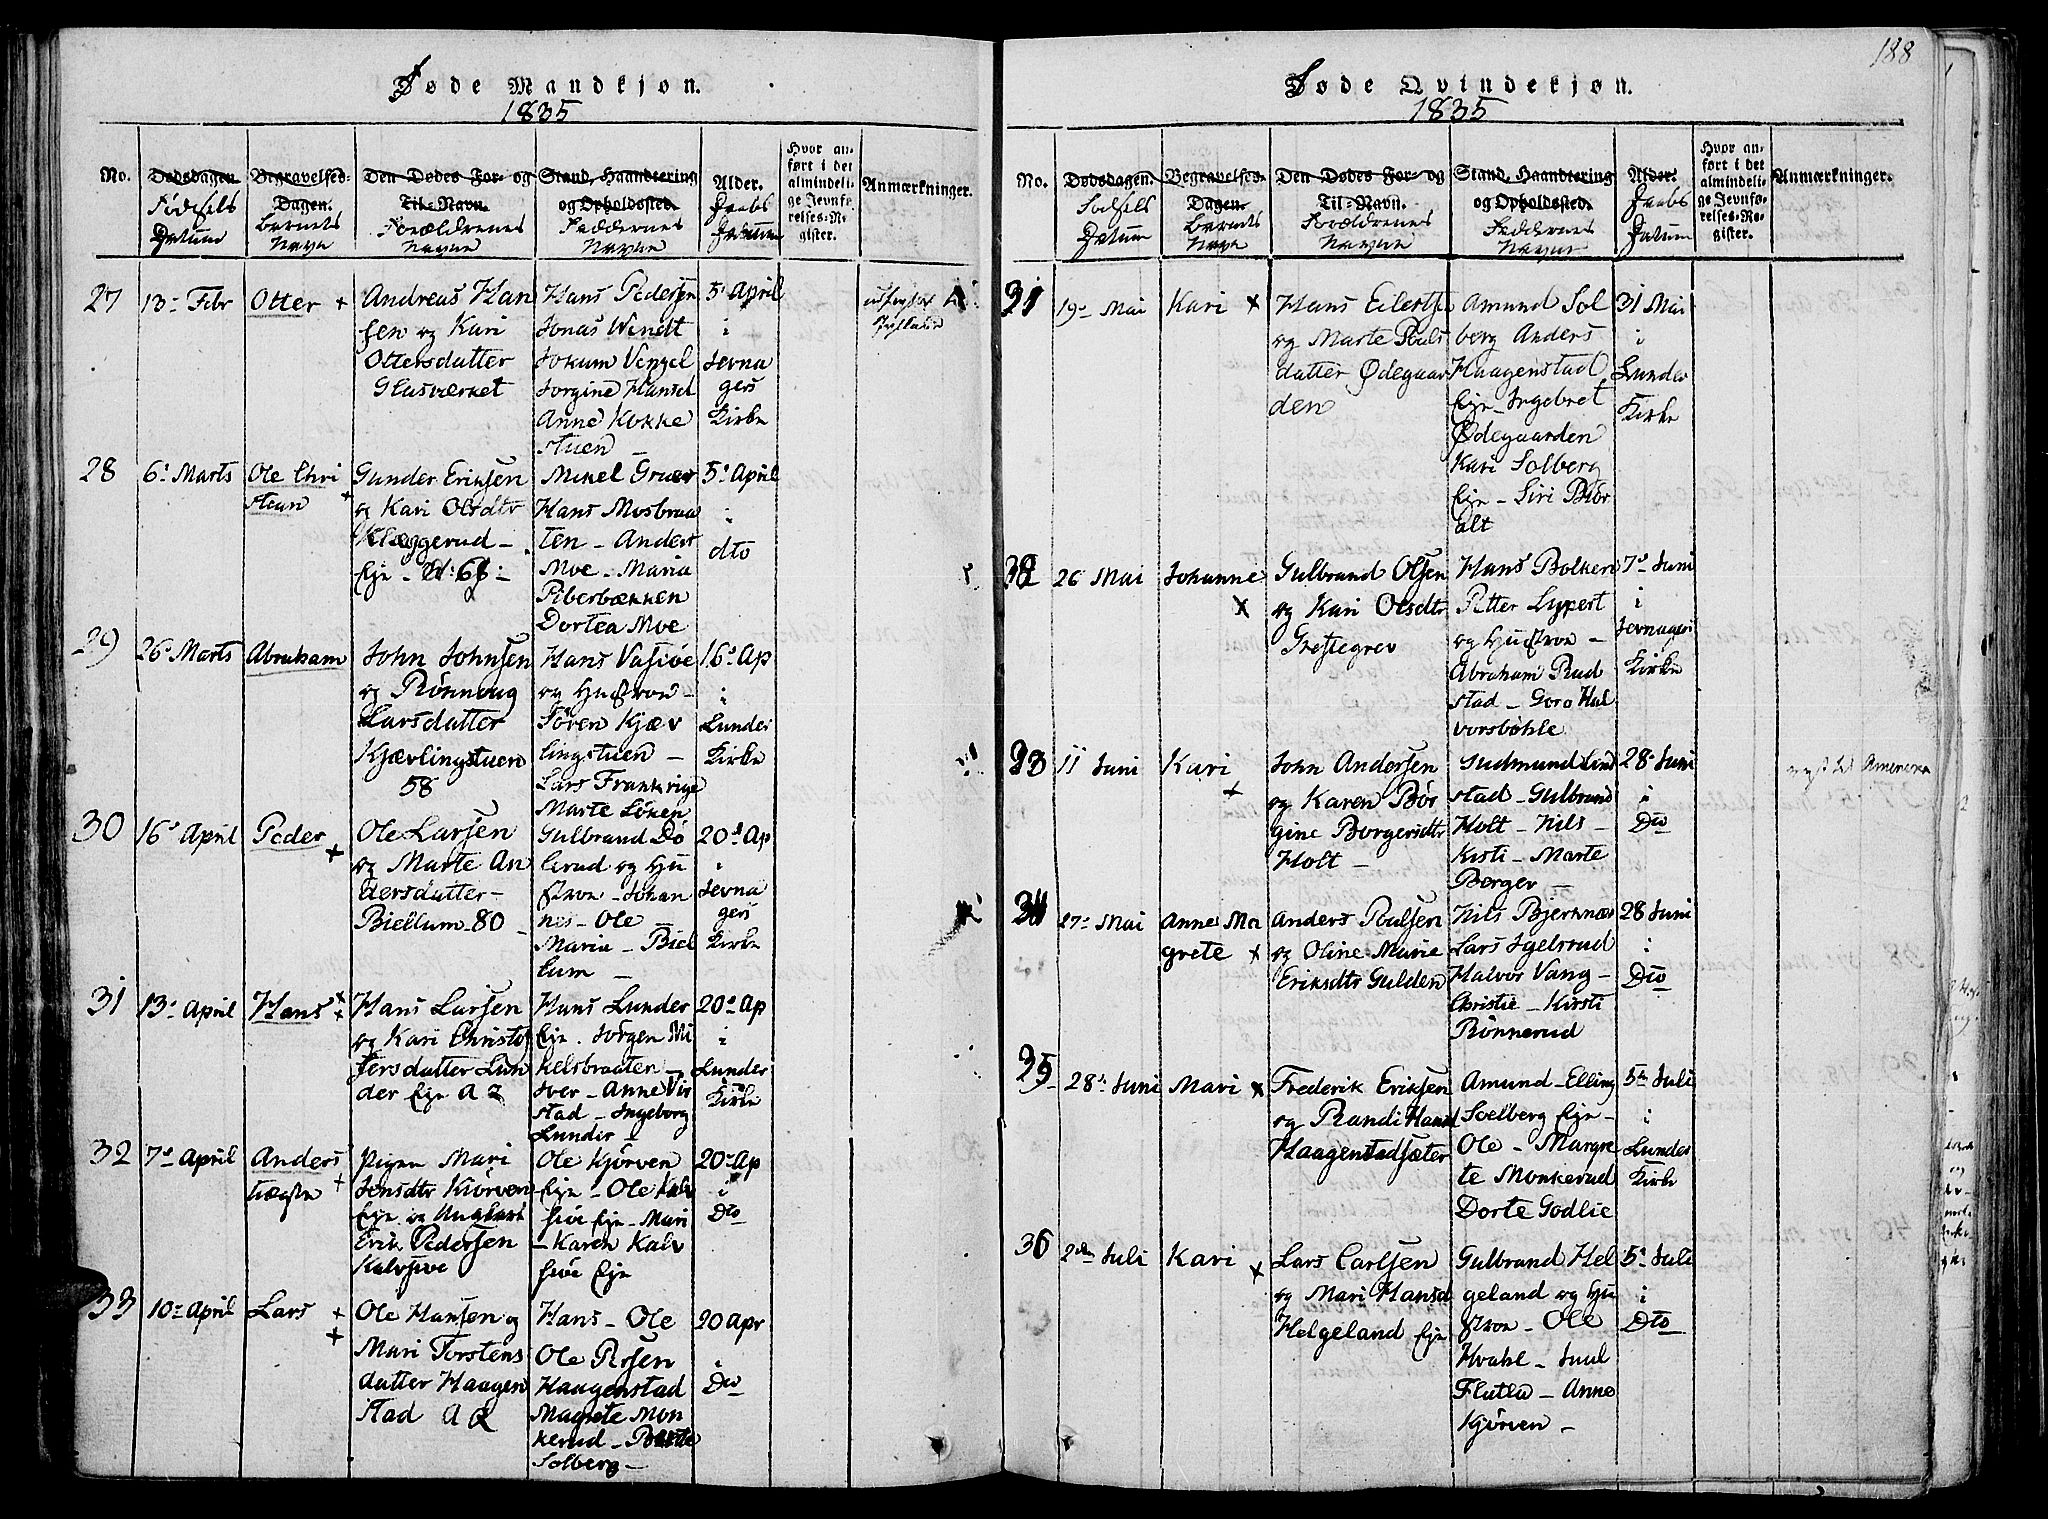 Føde Mandkjøn.
1835
No.
Dødsdagen
Fødsels
Datum
Begravelses-
Dagen.
Barnets
Navn
Den Dødes For- og
Til-Navn.
Forældrenes
Navne
Stand, Haandtering
og Opholdssted.
Faddernes
Navne
Alder.
Daabs
Datum
Hvor an-
ført i det
almindeli-
ge Jevnfø-
relses-Re-
gister.
Anmærkninger.
27
13 Febr
Otter
Andreas Han
sen og Kari
Ottersdatter
Glasværket
Hans Pedersen
Jonas Wendt
Jokum Venzel
Jorgine Hansd
Anne Kokke
stuen
5 April
i
Jevna
gers
Kirke
28
6 Marts
Ole Chri
stian
Gunder Eriksen
og Kari Olsdtr
Klæggerud
Eje
Mikel Gruer
Hans Mosbraa
ten - Anders
Moe - Maria
Piberbækken
Dortea Moe
5 April
i
dto
29
26 Marts
Abraham
John Johnsen
og Rønnoug
Larsdatter
Kjævlingstuen
58
Hans Vasiøe
og Hustroe
Søren Kjæv
lingstuen
Lars Frankrige
Marte Löken
16 Ap
i
Lunder
Kirke
30
16 April
Peder
Ole Larsen
og Marte An
dersdatter
Biellum 80
Gulbrand Dö
lerud og Hu
stroe - Johan
nes - Ole
Maria - Biel
lum
20 Ap
i
Jevna
gers
Kirke
31
13 April
Hans
Hans Larsen
og Kari Christof
fersdatter Lun
der Eje A 2
Hans Lunder
Eje. Jörgen Mi
kelsbraaten
Iver - Anne Vis
stad - Ingeborg
Lunder
20 Ap
i
Lunder
Kirke
32
7 April
Anders
uægte
Pigen Mari
Jensdtr Kiörven
Eje og Ungkarl
Erik Pedersen
Kalvsiøe
Ole Kjörven
Eje - Ole Kalv
siøe Eje - Mari
- Karen Kalv
siøe Eje
20 Ap
i
Dto
33
10 April
Lars
Ole Hansen og
Mari Torstens
datter Haagen
stad A 2
Hans - Ole
Ole Persen
Haagenstad
Magrete Mon
kerud
Solberg
20 Apr
i
Dto
188
Føde Qvindekjøn.
1835
No.
Dødsdagen.
Fødsels
Datum
Begravelses-
Dagen.
Barnets
Navn
Den Dødes For- og
Til-Navn.
Forældrenes
Navne
Stand, Haandtering
og Opholdssted.
Faddernes
Navne
Alder.
Daabs
Datum
Hvor an-
ført i det
almindeli-
ge Jevnfø-
relses-Re-
gister.
Anmærkninger.
31
19 Mai
Kari
Hans Eilertsen
og Marte Pouls
datter Ødegaar
den
Amund Sol
berg Anders
Haagenstad
Eje - Ingebret
Ødegaarden
Kari Solberg
Eje - Siri Biör
alt
31 Mai
i
Lunder
Kirke
32
26 Mai
Johanne
Gulbrand Olsen
og Kari Olsdtr
Græstegrev
Hans Bolken
Petter Lypert
og Hustroe
Abraham Rud
stad - Goro Hal
vorsböhle
7 Juni
i
Jevnagers
Kirke
33
11 Juni
Kari
John Andersen
og Karen Bör
gine Borgersdtr
Holt
Gudmund Lind
stad - Gulbrand
Holt - Nils
Kisti - Marte
Borger
28 Juni
i
Dto
rejst til Amerika
34
27 Mai
Anne Ma
grete
Anders Poulsen
og Oline Marie
Eriksdtr Gulden
Nils Bjerknæs
Lars Igelsrud
Halvor Vang
Christie - Kirsti
Rönnerud
28 Juni
i
Dto
35
28 Juni
Mari
Frederik Eriksen
og Randi Hansd
Haagenstadsæter
Amund - Elling
Soelberg Eje
Ole - Margre
te Monkerud
Dorte Godlie
5 Juli
i
Lunder
Kirke
36
2den Juli
Kari
Lars Carlsen
og Mari Hansd
Helgeland Eje
Gulbrand Hel
geland og Hu
stroe - Ole
Hvahl - Juul
Flatla - Anne
Kjörven
5 Juli
i
Dto